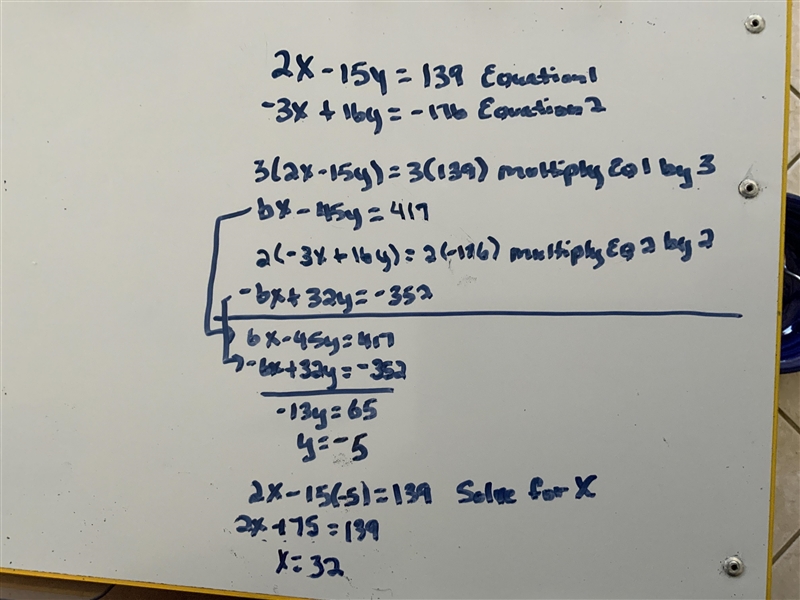 2x - 15y = 139 Equation 1
-3x + 16y = -176 Equation 2
3(2x - 15y) = 3(139) multiply EQ 1 by 3
6x - 45y = 417
2(-3x + 16y) = 2(-176) multiply EQ 2 by 2
-6x + 32y = -352
6x - 45y = 417
-6x + 32y = -352
-13y = 65
y = -5
2x - 15(-5) = 139 Solve for X
2x + 75 = 139
x = 32